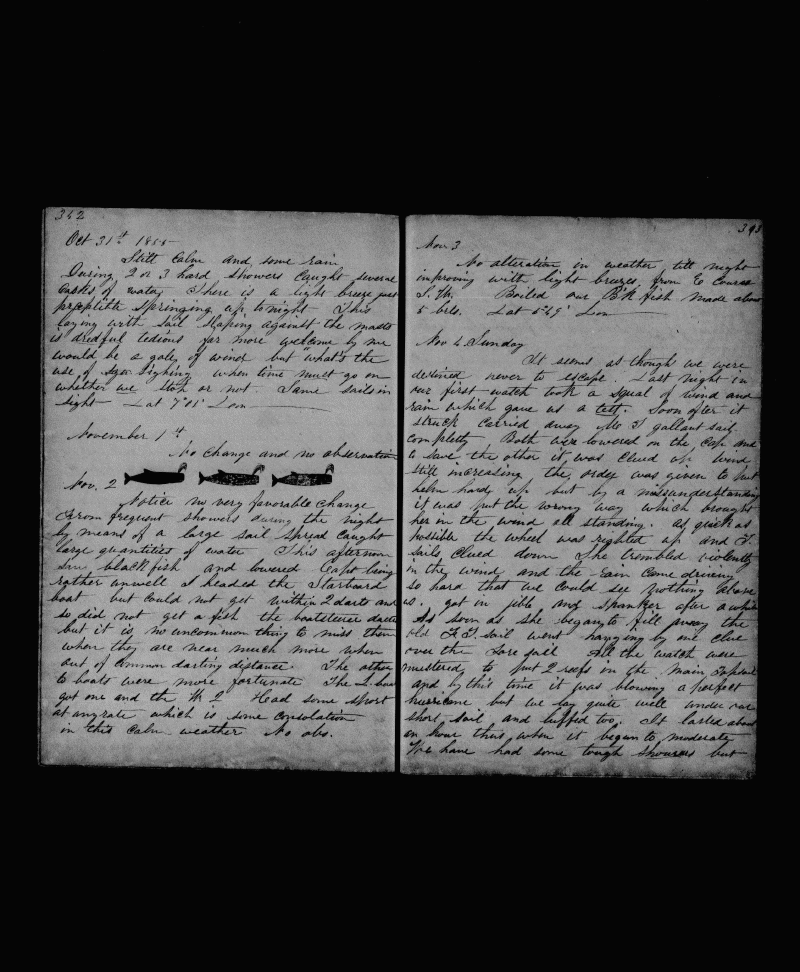 342
Oct 31st 1855
Still Calm and some rain
During 2 or 3 hard showers caught several
Casks of water. There is a light breeze just
perceptible springing up to night This
laying with sail slaping against the masts
is dredful tedious far more welcome by me
would be a galey of wind but what's the
use of sighing when time must go on
whether we stop or not. Same sails in
sight Lat 7°05' Lon
November 1st
No change and no observation
Nov. 2
Notice no very favorable change
From frequent showers during the night
by means of a large sail spread caught
large quantities of water This afternoon
saw blackfish and lowered Capt being
rather unwell I headed the Starboard
boat but could not get within 2 darts and
so did not get a fish the boatsteerer darted
but it is no uncommon thing to miss them
when they are near much more when
out of common darting distance. The other
to boats were more fortunate The L. boat
got one and the W 2 Had some sport
at anyrate which is some consolation
in this calm weather No obs.
343
Nov 3
No alteration in weather till night
improving with light breezes from E Course
S.W. Boiled our Blk fish made about
5 brls. Lat 5°49' Lon
Nov 4. Sunday
It seems as though we were
destined never to escape. Last night in
our first watch took a squal of wind and
rain which gave us a test. Soon after it
struck carried away M T gallant sail
completly Both were lowered on the cap and
to save the other it was clued up wind
still increasing the order was given to put
helm hard up but by a missunderstanding
it was put the wrong way which brought
her in the wind all standing. As quick as
possible the wheel was righted up and T.
sails clued down She trembled violently
in the wind and the rain came driving
so hard that we could see nothing above
us. got in jibb and spanker after a while
As soon as she began to fall away the
old F.T. sail went hanging by one clue
over the Fore sail All the watch were
mustered to put 2 reefs in the main Topsail
and by this time it was blowing a perfect
hurricane but we lay quite well under our
short sail and luffed too. It lasted about
an hour thus when it began to moderate
We have had some tough showers but